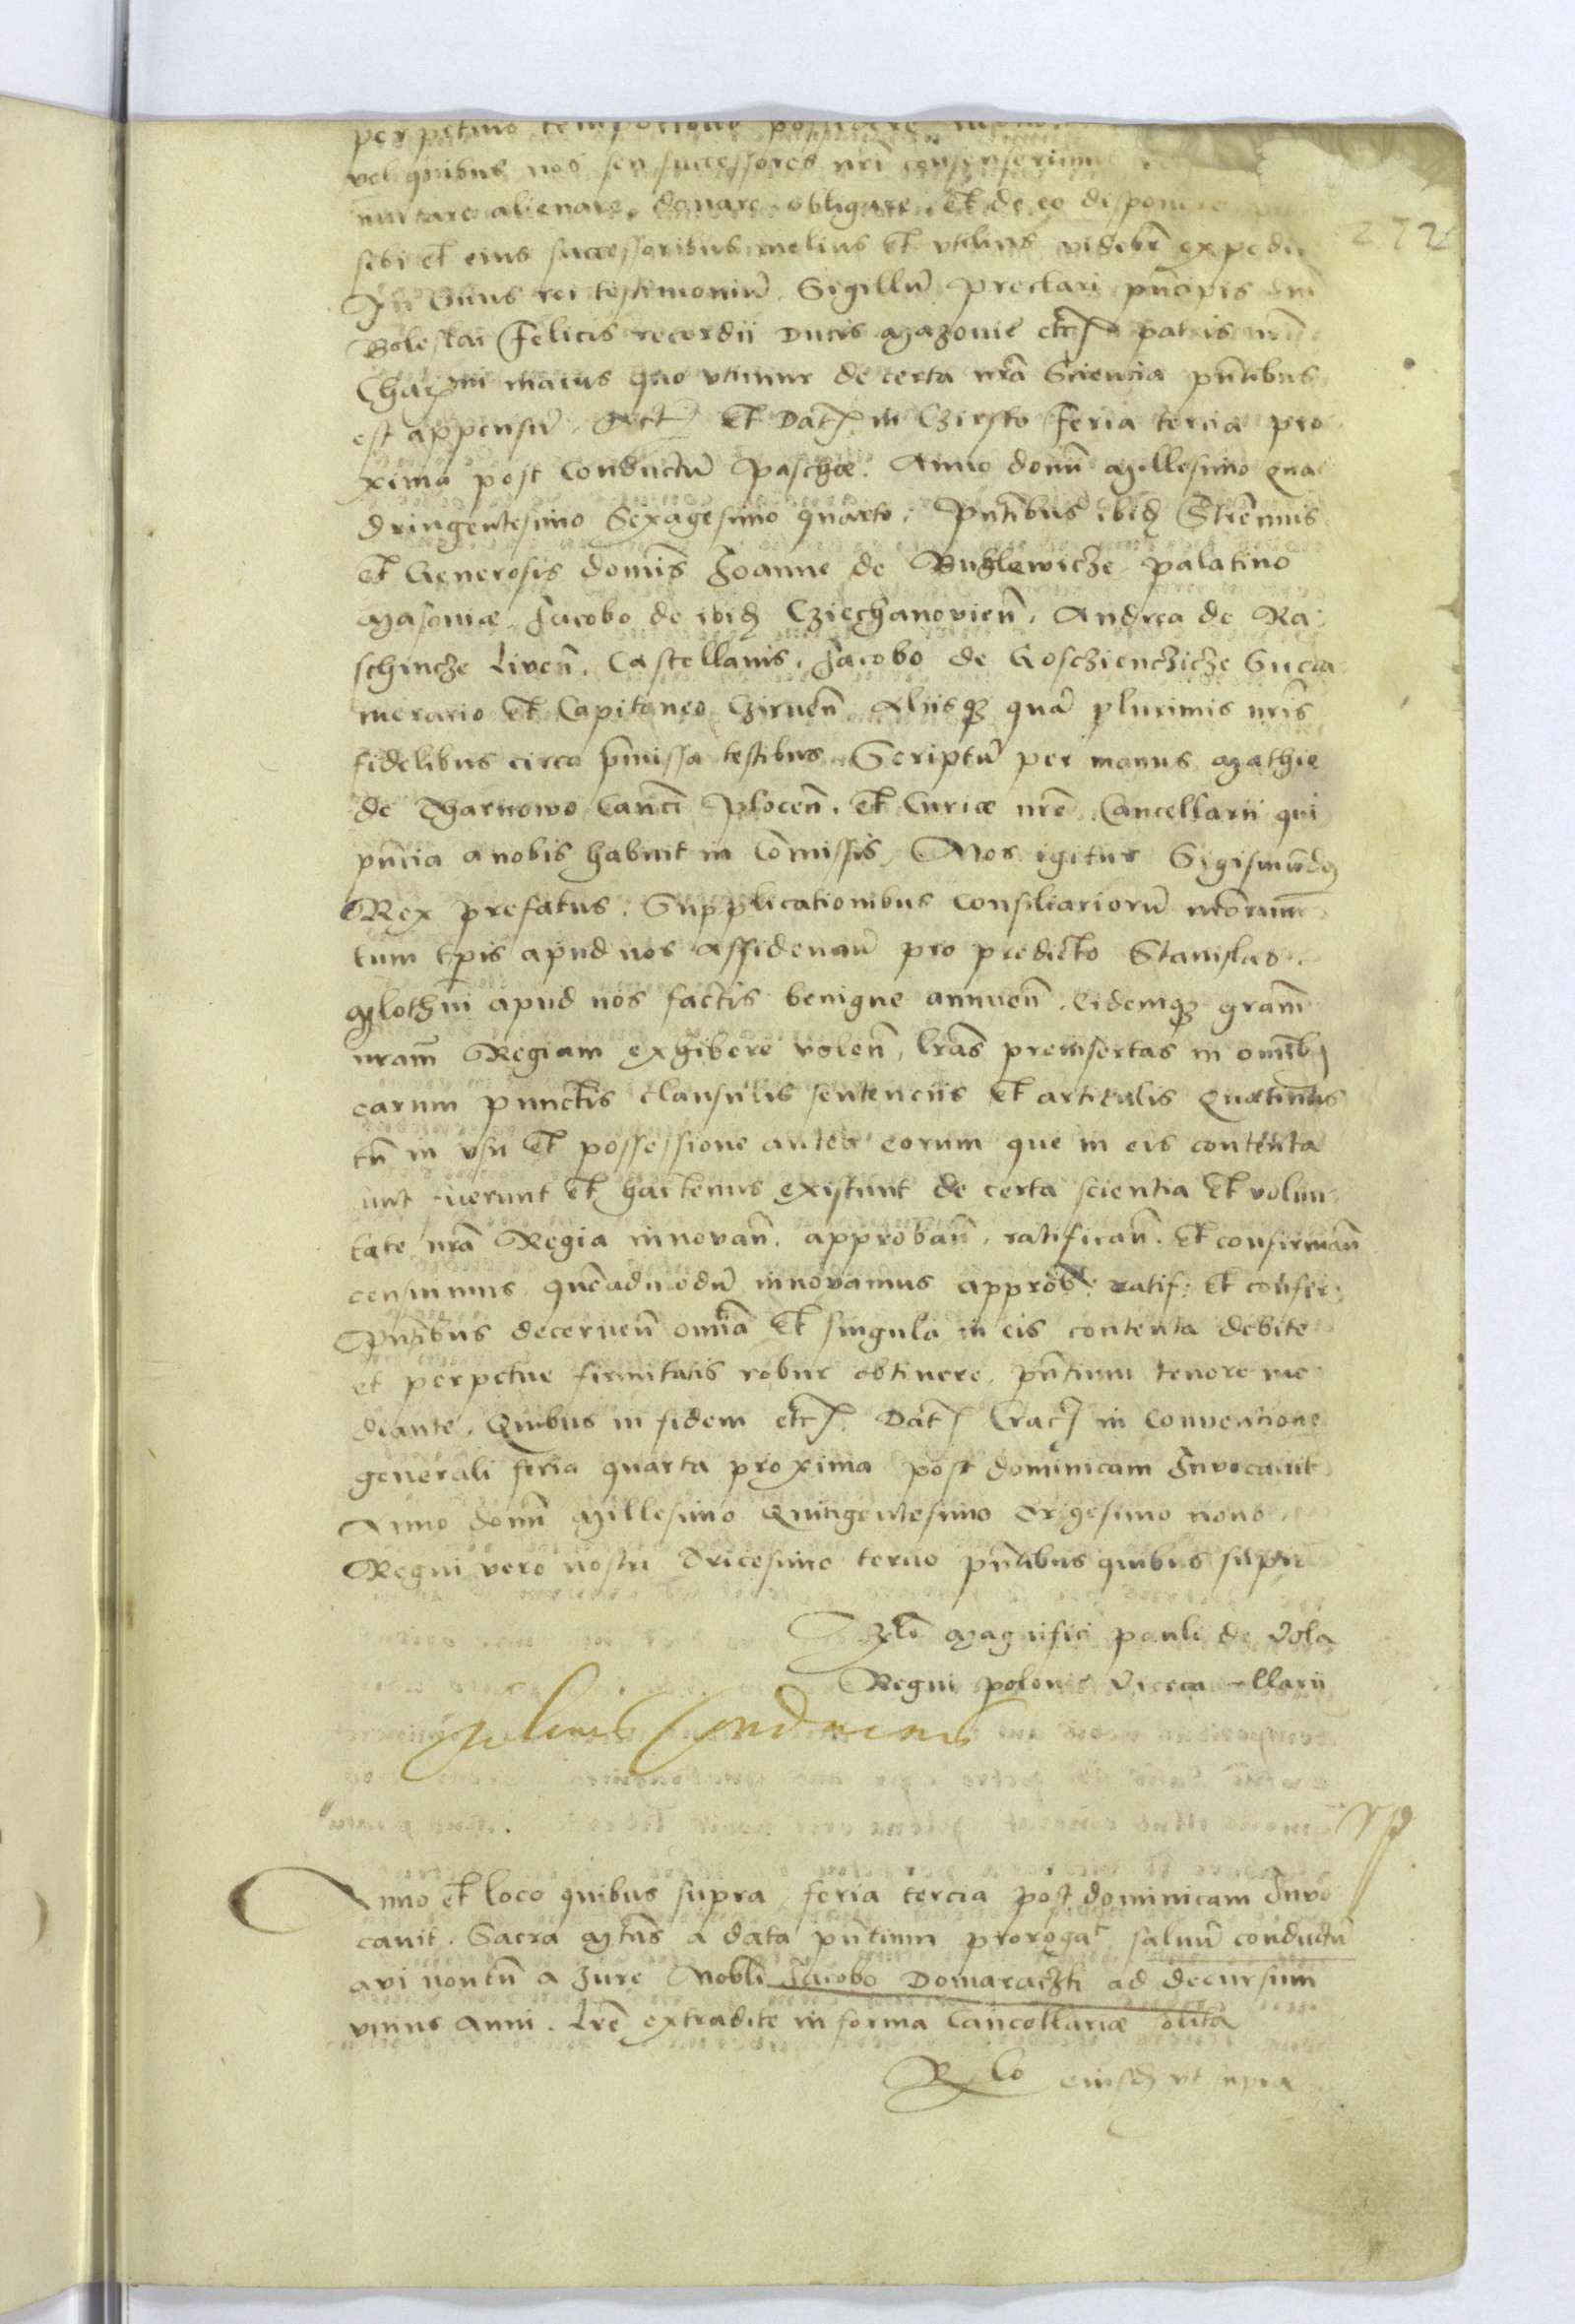 perpetuis temporibus possidere
vel quibus nos seu successores nrī consenserimus
mutare alienare, donare obligare, et de eo disponere
sibi et eius successoribus melius et vtilius videbr̄ expedir
In Cuius rei testimoniū Sigillū preclari pn̄cipis dnī
Boleslai felicis recordii Ducis Mazouie etc. patris nrī
Charissimi maius quo vtimur de certa nrā Sciencia pn̄tibus
est appensū. Act et Dat. in Cziersko feria tercia pro
xima post Conductū Paschæ. Anno domī Millesimo qua
dringentesimo Sexagesimo quarto. Pn̄tibus ibid Strennuis
et Generosis domīs Joanne de Buglewicze palatino
Masouiæ. Jacobo de ibid Cziechanovien̄. Andrea de Ra
schincze Liven̄. Castellanis. Jacobo de Goschienczicze Succa
merario et Capitaneo Czirnen̄ Aliisq3 quā plurimis nrīs
fidelibus circa pm̄issa testibus. Scriptū per manus Mathie
de Tharnowo Canci Plocen̄. et Curiæ nrē Cancellarii qui
pn̄cia a nobis habuit in Com̄issis. Nos igitur Sigismūdq
Rex prefatus. Supplicationibus consiliariorū nrōrum
tum tp̄is apud nos assidenciū pro predicto Stanislao
apud nos factis benigne annuen̄. Eidemq3 gram̄
nram̄ Regiam exhibere volen̄, lrās preinsertas in omīb
earum punctis clausulis sentenciis et articulis Quatinus
tn̄ in vsu et possessione antea eorum que in eis contenta
sunt fuerunt et hactenus existunt de certa scientia et volun
tate nrā Regia innovan̄. approban̄. ratifican̄. et confirman̄
censuimus quēadmodū innovamus approb: ratif: et confir:
Pn̄tibus decernen̄ omīa et singula in eis contenta debite
et perpetue firmitatis robur obtinere, pn̄tium tenore me
diante. Quibus in fidem etc. Dat. Crac in Conventione
generali feria quarta proxima post dominicam Invocauit
Anno domī Millesimo Quingentesimo Trigesimo nono.
Regni vero nostri Tricesimo tercio pn̄tibus quibus supra
Rlō Magnifici pauli de Vola
Regni polonie Viceca llarii
Anno et loco quibus supra, feria tercia post dominicam Invo
cauit. Sacra Mtās a data pn̄tium prorogat saluū conductū
avi non tn̄ a Jure Nobli Jacobo Domaraczki ad decursum
vnius Anni. Lrē extradite in forma Cancellariæ solita
Rlō eiusd vt supra
272